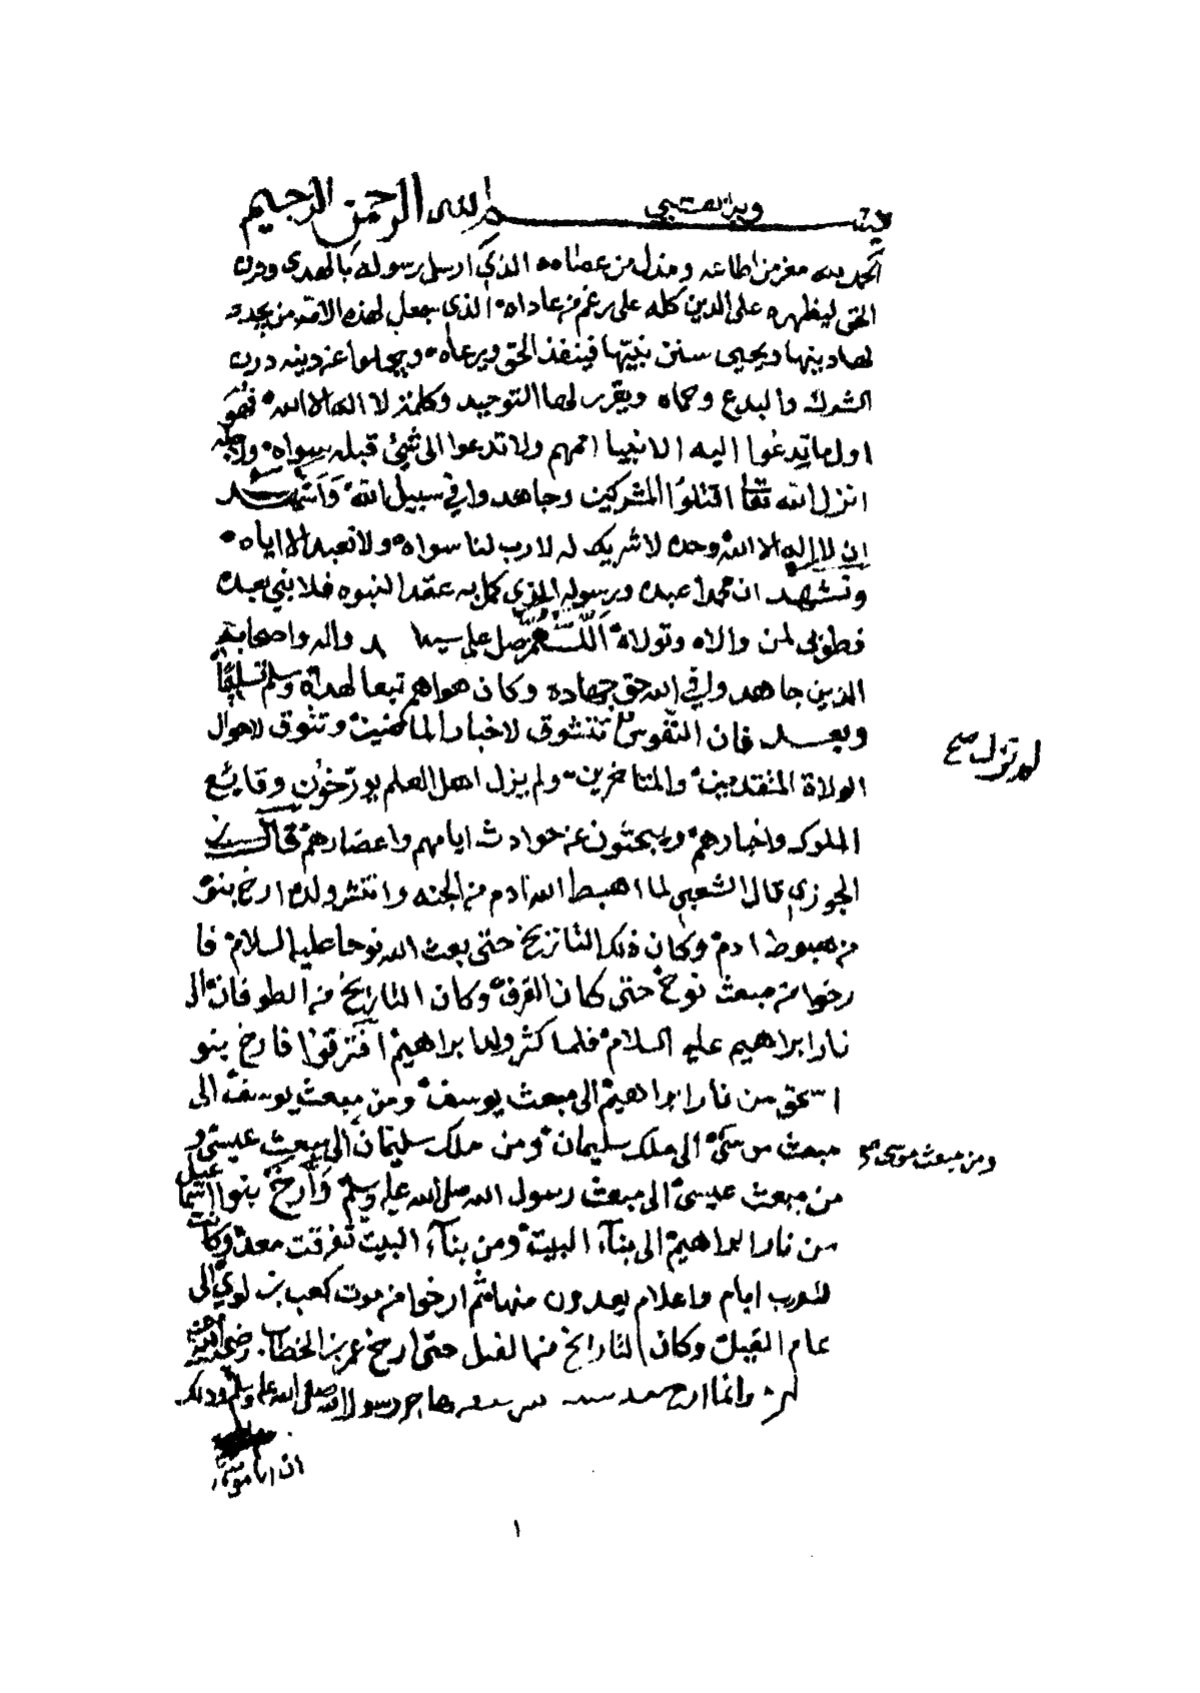 بسم الله الرحمن الرحيم وبه نستعين
الحمد لله معز من اطاعه ومذل من عصاه الذي ارسل رسوله بالهدى ودين
الحق ليظهره على الدين كله على رغم من عاداه الذي جعل لهذه الامة من يجدد
لها دينها ويحيى سنن نبيها فينفذ الحق ويرعاه ويجلوا عن دينه درن
الشرك والبدع وحماه ويقرر لها التوحيد وكلمة لا اله الا الله فهو
اول ما تدعوا اليه الانبيا اممهم ولا تدعوا الى شيئ قبله سواه ولاجله
انزل الله تعا اقتلوا المشركين وجاهدوا في سبيل الله واشهد
ان لا إله الا الله وحده لا شريك له لا رب لنا سواه ولا نعبد الا اياه
ونشهد ان محمدا عبده ورسوله الذي كمل به عقد النبوه فلا نبي بعده
فطوبى لمن والاه وتولاه اللهم صل على سيدنا واله واصحابه
الذين جاهدوا في الله حق جهاده وكان هواهم تبعا لهداه وسلم تسليما
وبعد فان النفوس تتشوق لاخبار الماضين وتتوق لاحوال
لم تزل صح
الولاة المتقدمين والمتاخرين ولم يزل اهل العلم يورخون وقايع
الملوك واخبارهم ويبحثون عن حوادث ايامهم واعصارهم قال
الجوزي قال الشعبي لما اهبط الله ادم من الجنه وانتشر ولده ارخ بنوه
من هبوط ادم وكان ذلك التاريخ حتى بعث الله نوحا عليه السلام فا
رخوا من مبعث نوح حتى كان الغرق وكان التاريخ من الطوفان الى
نار ابراهيم عليه السلام فلما كثر ولد ابراهيم افترقوا فارخ بنو
اسحق من نار ابراهيم الى مبعث يوسف ومن مبعث يوسف الى
مبعث موسى الى ملك سليمان ومن ملك سليمان الى مبعث عيسى و
ومن مبعث موسى
من مبعث عيسى الى مبعث رسول الله صلى الله عليه وسلم وأرخ بنوا اسماعيل
من نار ابراهيم الى بناء البيت ومن بناء البيت تفرقت معد وكانت
للعرب ايام واعلام يعدون منها ثم ارخوا من موت كعب بن لوي الى
عام الفيل وكان التاريخ من الفيل حتى ارخ عمر بن الخطاب رضي الله عنه
وانما ارخ هاجر رسول الله صلى الله عليه وسلم وذلك
ان ابا موسى
١